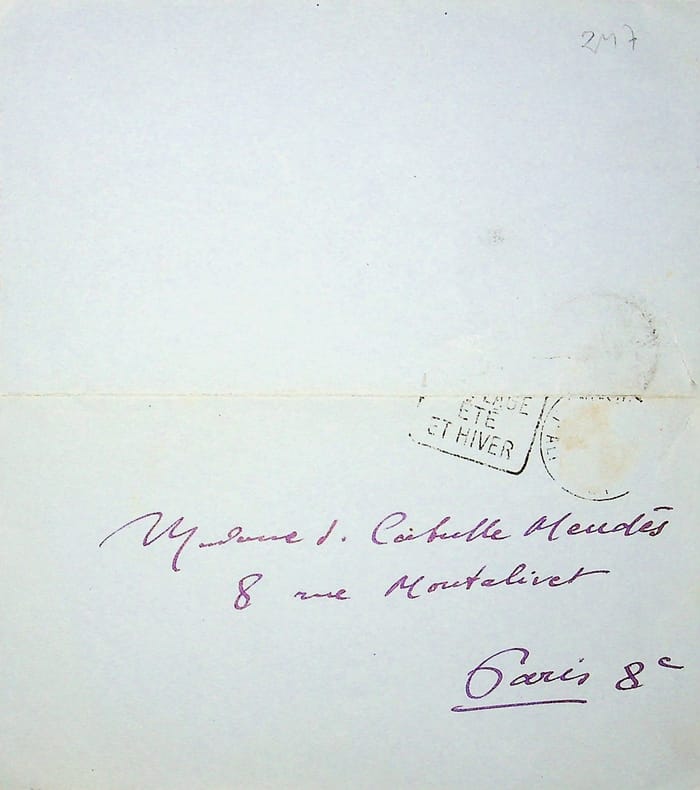 2117
PLAGE
ÉTÉ
ET HIVER
Madame J. Catulle Mendès
8 rue Montalivet
Paris 8e